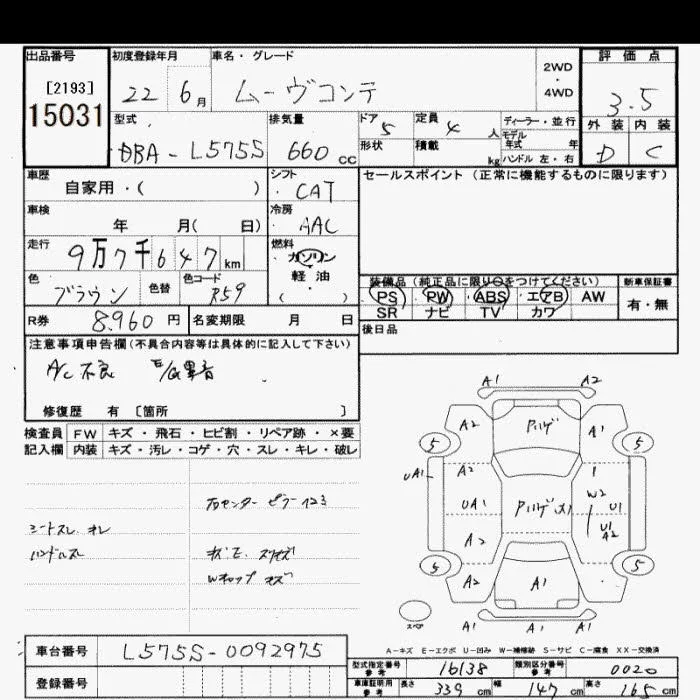 出品番号
[2193]
15031
初度登録年月
22 6月
車名・グレード
ムーヴコンテ
2WD
・
4WD
評価点
3.5
外装 内装
D C
型式
DBA-L575S
排気量
660 cc
ドア 5
定員 4 人
形状
積載 kg
ディーラー・並行
モデル
年式 年
ハンドル 左・右
車歴
自家用・( )
シフト
CAT
セールスポイント(正常に機能するものに限ります)
車検
年 月( 日)
冷房
AAC
走行
9万7千647km
燃料
ガソリン
軽油
( )
色
ブラウン
色替
色コード
R59
装備品(純正品に限り○をつけてください)
PS PW ABS エアB AW
SR ナビ TV カワ
新車保証書
有・無
R券 8,960円
名変期限 月 日
後日品
注意事項申告欄(不具合内容等は具体的に記入して下さい)
A/C不良
修復歴 有 [箇所 ]
検査員 FW キズ・飛石・ヒビ割・リペア跡・×要
記入欄 内装 キズ・汚レ・コゲ・穴・スレ・キレ・破レ
右センターピラー123
シートスレ オレ
ハンドルスレ
A1 A2
A2 A1
5 5
UA1 A2
UA1 W2 U1
U1
A2
A2
5 5
A2 A1
スペア
A1 A1 A1
A-キズ E-エクボ U-凹み W-補修跡 S-サビ C-腐食 XX-交換済
車台番号 L575S-0092975
登録番号
型式指定番号
参考
16138
類別区分番号
参考
0020
車庫証明用
参考
長さ 339cm 幅 147cm 高さ 165cm